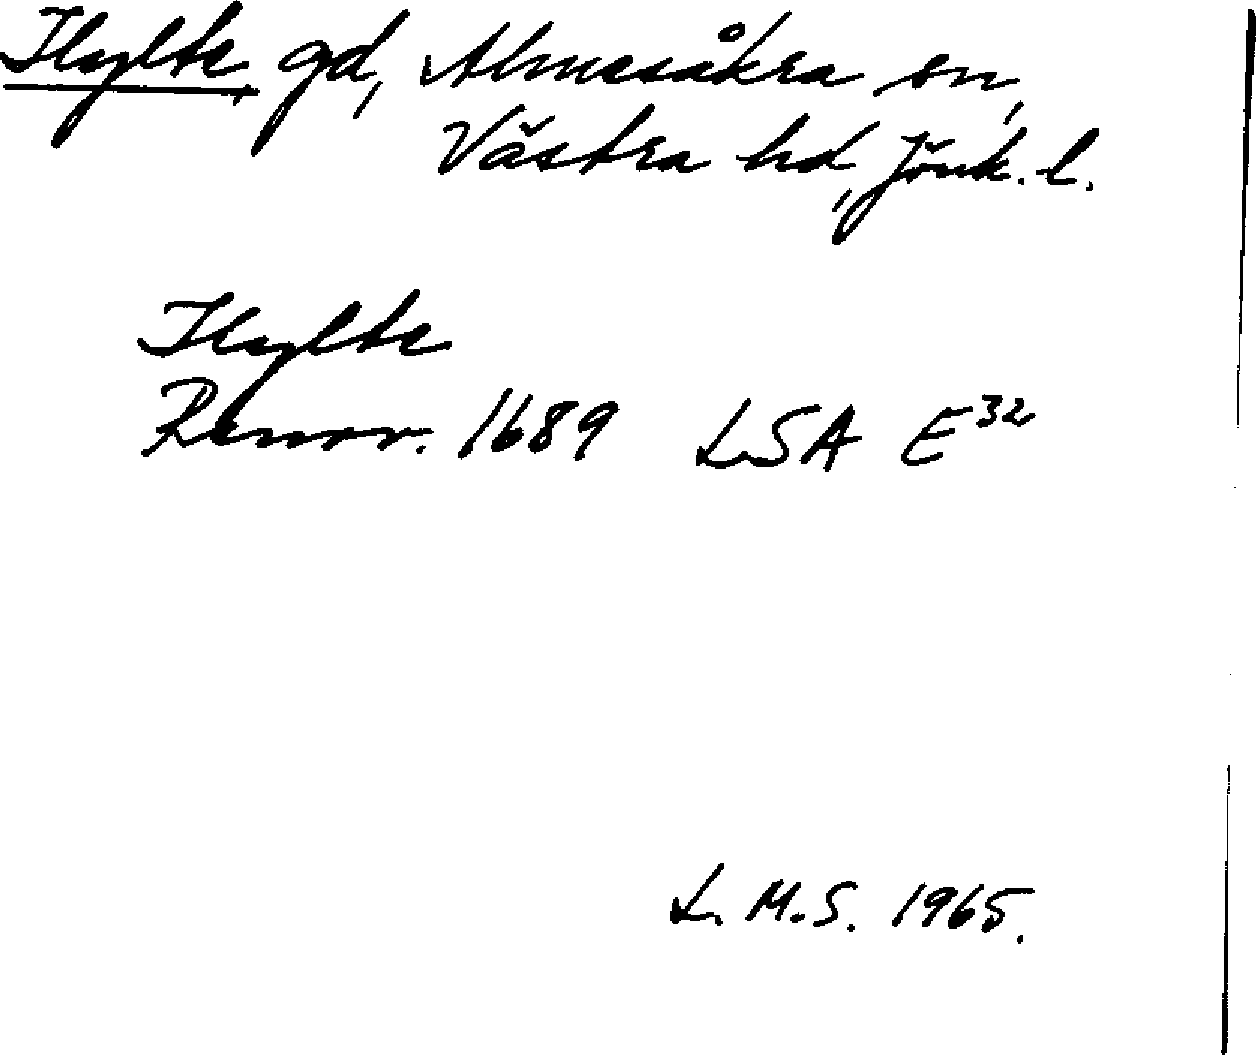 Ilsylte, gd, Almesåkra sn,
Västra hd, Jönk. l.
Ilsylte
Renov. 1689 LSA E32
L. M.S. 1965.